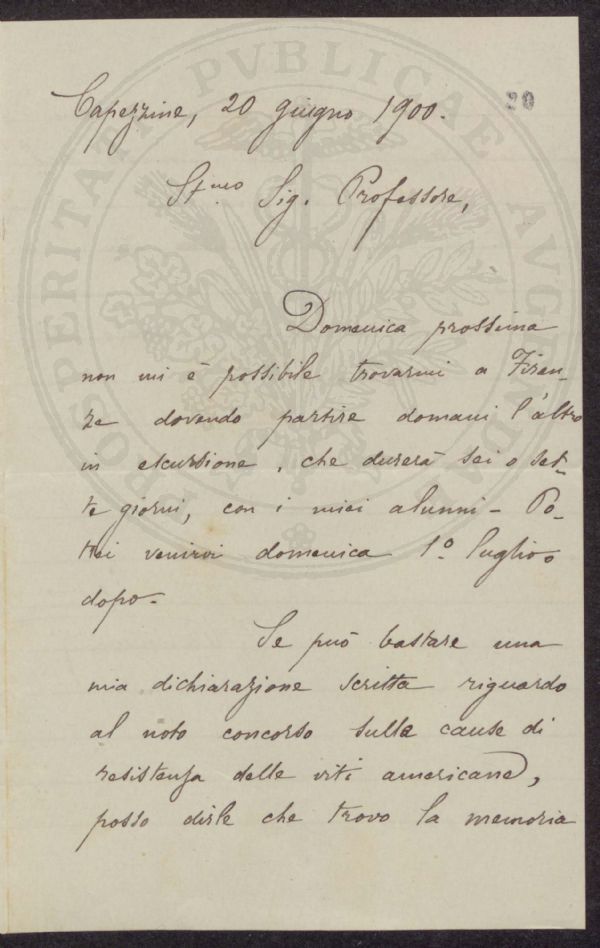 PROSPERITATI PVBLICAE AVGENDAE
20
Capezzine, 20 giugno 1900.
St.mo Sig. Professore,
Domenica prossima
non mi è possibile trovarmi a Firen-
ze dovendo partire domani l'altro
in escursione, che durerà sei o set-
te giorni, con i miei alunni - Po-
trei venirvi domenica 1º luglio o
dopo -
Se può bastare una
mia dichiarazione scritta riguardo
al noto concorso sulle cause di
resistenza delle viti americane,
posso dirle che trovo la memoria